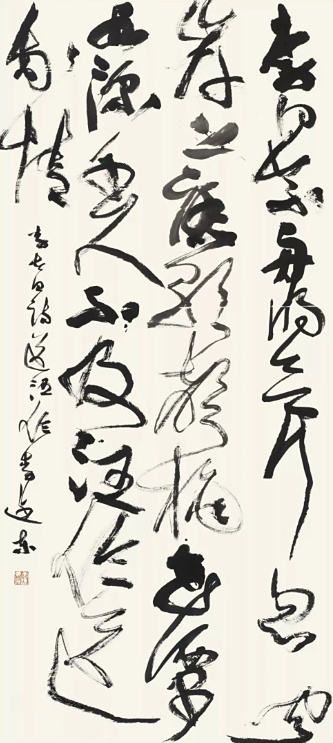 李白乘舟將欲行忽聞
岸上踏歌聲桃花潭
水深千尺不及汪倫送
我情
李太白詩
汪倫